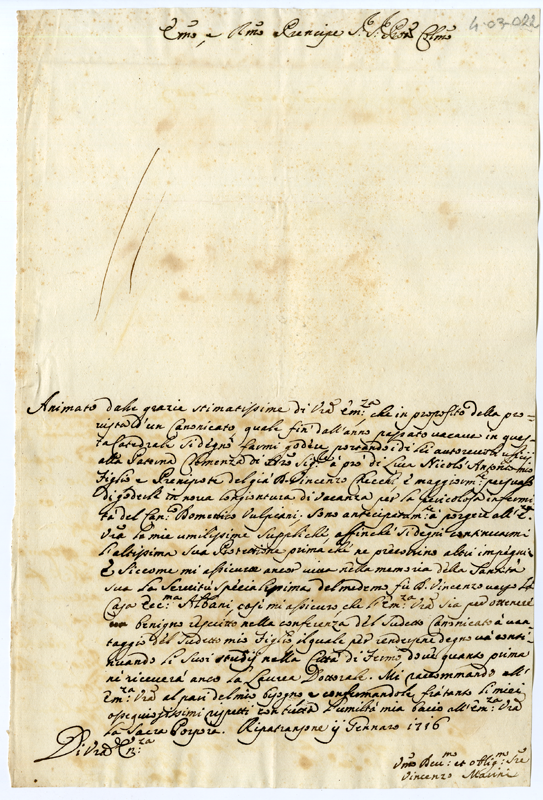 4-03-022
Em̃o, e Rm̃o Prencipe Sig.r Pron̄e Colm̃o
Animato dalle grazie stimatissime di Vrã Em:za che in proposito della pro-
vista d'un Canonicato quale fin' dall'anno passato vacava in ques-
ta Catedrale si degnò farmi godere
alla Paterna Clemenza di à pro di Luca Nicolò Ant.o mio
Figlio e Nenepote del già D. Vincenzo Cecchi, è maggiorm.te
di goderle in nova congiontura di vacanza per la pericolosa infermi-
tà del Can.co Domenico Vulpiani. Sono anticipatam.te à porgere all'E.
Vrã le mie umilissime suppliche, affinche si degni continuarmi
l'altissima Sua Protett.ne prima che ne precorrino altri impegni:
E siccome mi assicuro ancor viva nella memoria della Santità
sua la Servitù specialissima del mèdemo fù D. Vincenzo verso la
Casa Ecc.ma Albani, così mi assicuro che l'Em:za Vrã sia per ottenere
un Benigno rescritto nella conferenza del Sudetto Canonicato à van-
taggio del Sudetto mio Figlio il quale per rendersene degno và conti-
nuando li suoi studij nella Città di Fermo, dove quanto prima
ne riceverà anco la Laurea Dottorale. Mi raccommando all'
Em:za Vrã al pari del mio bisogno e confermandole frà tanto li miei
ossequiosissimi rispetti con tutta l'umiltà mia bacio all'Em:za Vrã
la Sacra Porpora. Ripatransone ij Gennaro 1716
Di Vrã Em:za
Um̃o Dev.mo et oblig.mo Sre
Vincenzo Masini